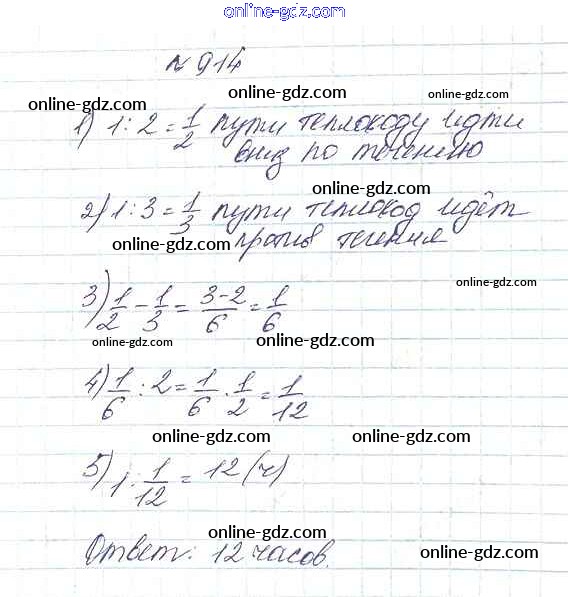 online-gdz.com
№ 914
online-gdz.com online-gdz.com
1) 1 : 2 = 1/2 пути теплоходу идти
вниз по течению
online-gdz.com
2) 1 : 3 = 1/3 пути теплоход идёт
online-gdz.com против течения
online-gdz.com
3) 1/2 - 1/3 = 3-2/6 = 1/6
online-gdz.com online-gdz.com
4) 1/6 : 2 = 1/6 · 1/2 = 1/12
online-gdz.com online-gdz.com
5) 1 : 1/12 = 12 (ч)
online-gdz.com
Ответ: 12 часов.
online-gdz.com